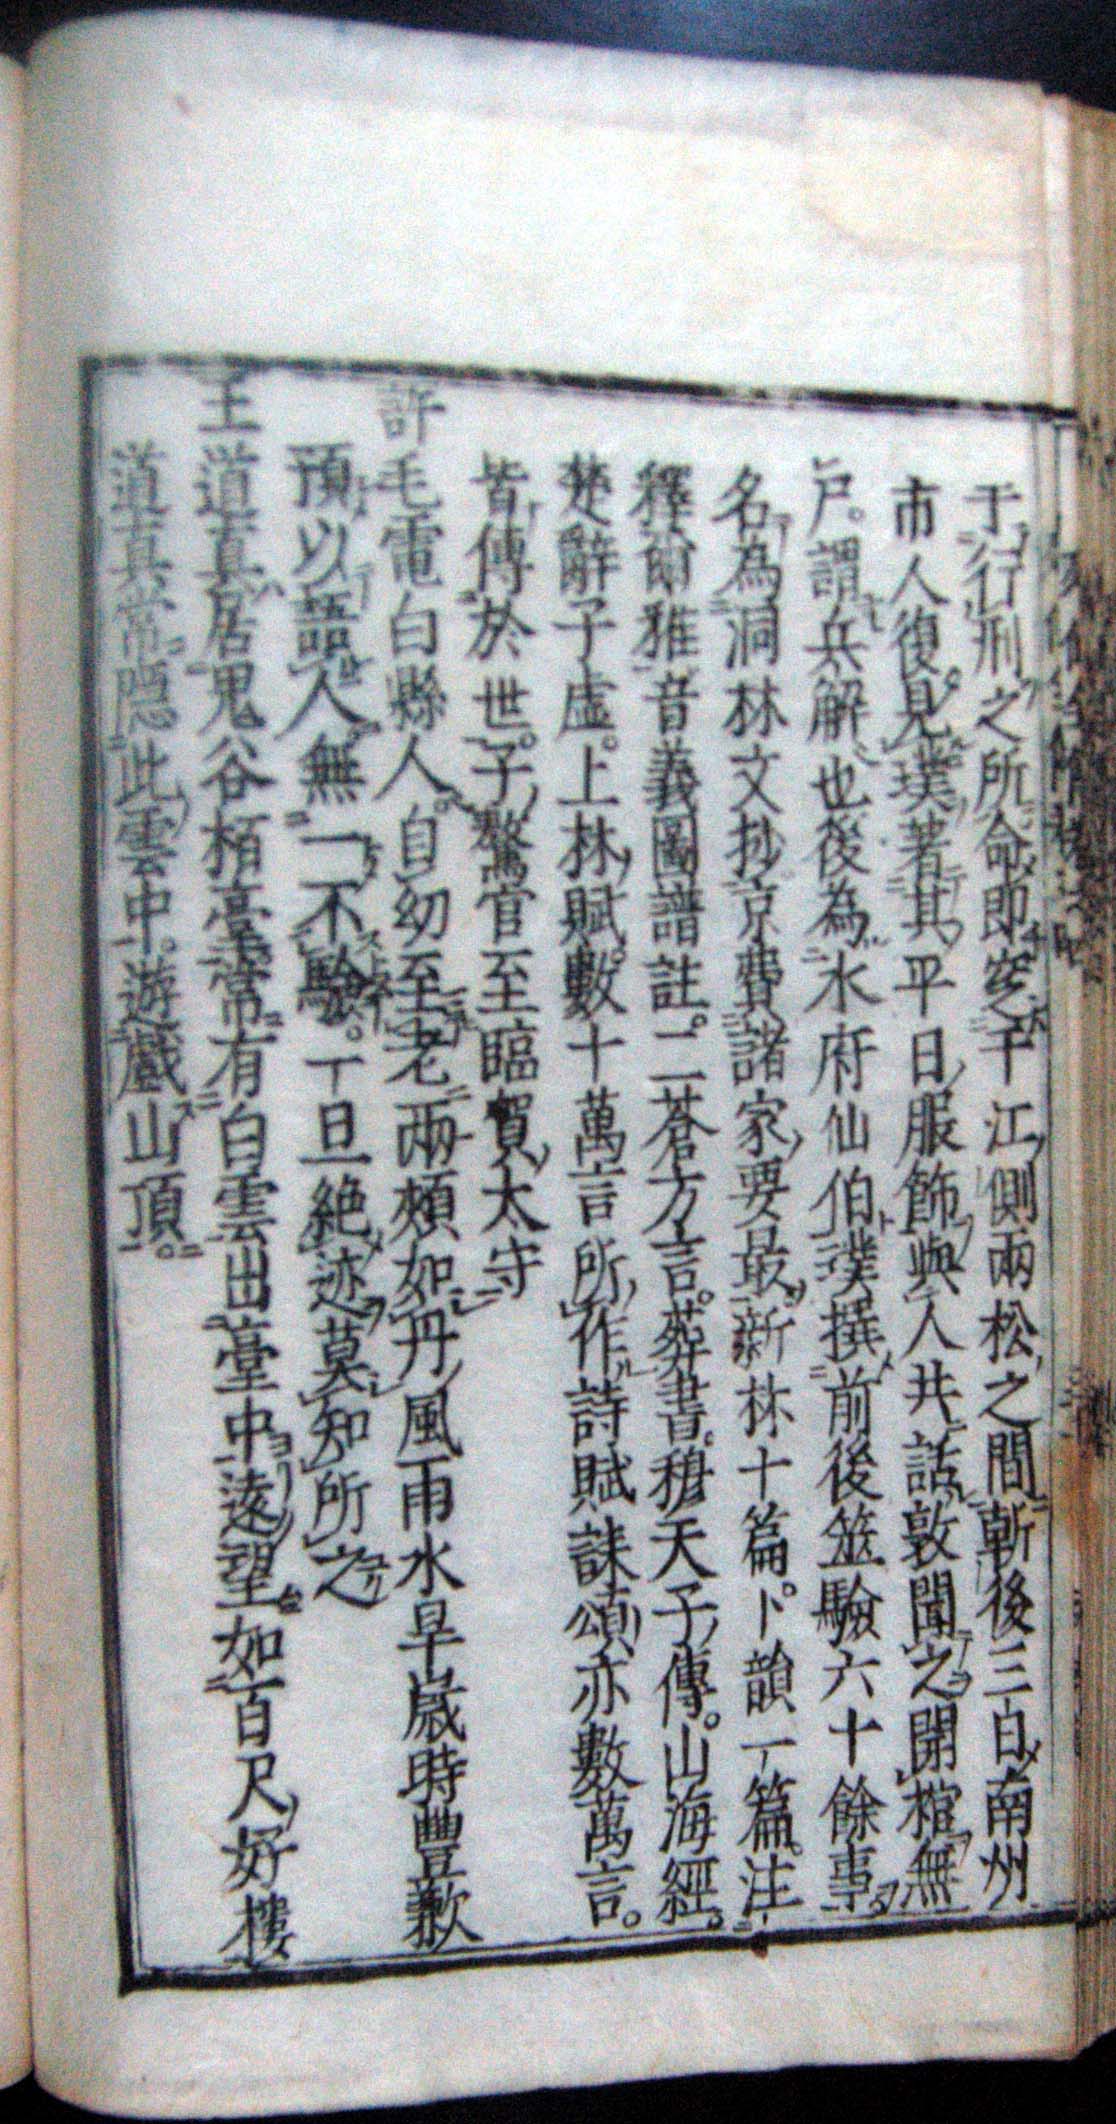 于行刑之所命即窆于江側兩松之間斬後三日南州
市人復見璞著其平日服飾與人共話敦聞之開棺無
尸。謂兵解也後為水府仙伯璞撰前後筮驗六十餘事
名為洞林文抄京費諸家要最新林十篇。卜韻一篇。注
釋爾雅音義圖譜註。二蒼方言。葬書。穆天子傳。山海經。
楚辭子虛。上林賦。數十萬言所作詩賦誄頌亦數萬言。
皆傳於世。子驁官至臨賀太守
許毛電白縣人。自幼至老兩頰如丹風雨水旱歲時豐歉
預以語人無一不驗。一旦絕迹莫知所之
王道真居鬼谷栢臺常有白雲出臺中遠望如百尺好樓
道真常隱此雲中。遊戲山頂。